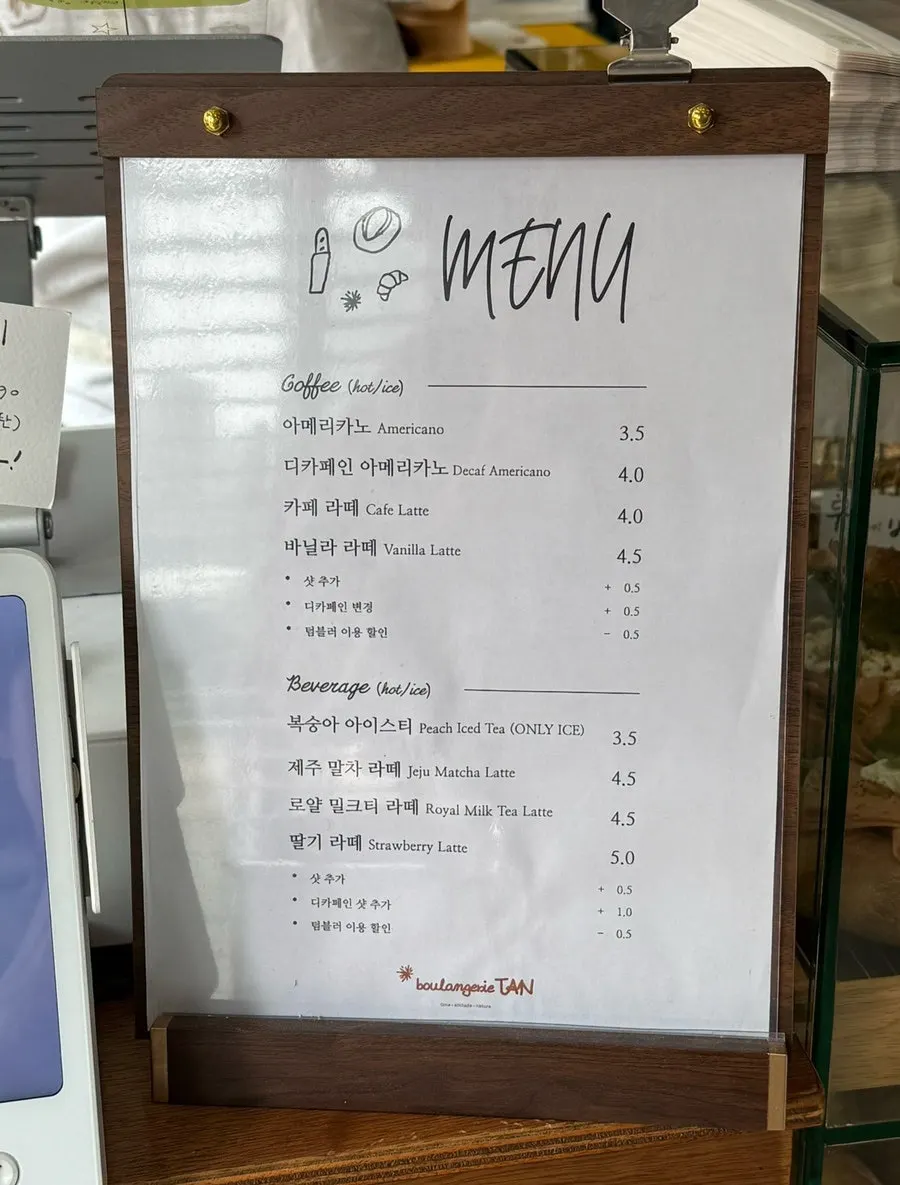 MENU
Coffee (hot/ice)
아메리카노 Americano 3.5
디카페인 아메리카노 Decaf Americano 4.0
카페 라떼 Cafe Latte 4.0
바닐라 라떼 Vanilla Latte 4.5
• 샷 추가 + 0.5
• 디카페인 변경 + 0.5
• 텀블러 이용 할인 - 0.5
Beverage (hot/ice)
복숭아 아이스티 Peach Iced Tea (ONLY ICE) 3.5
제주 말차 라떼 Jeju Matcha Latte 4.5
로얄 밀크티 라떼 Royal Milk Tea Latte 4.5
딸기 라떼 Strawberry Latte 5.0
• 샷 추가 + 0.5
• 디카페인 샷 추가 + 1.0
• 텀블러 이용 할인 - 0.5
boulangerie TAN